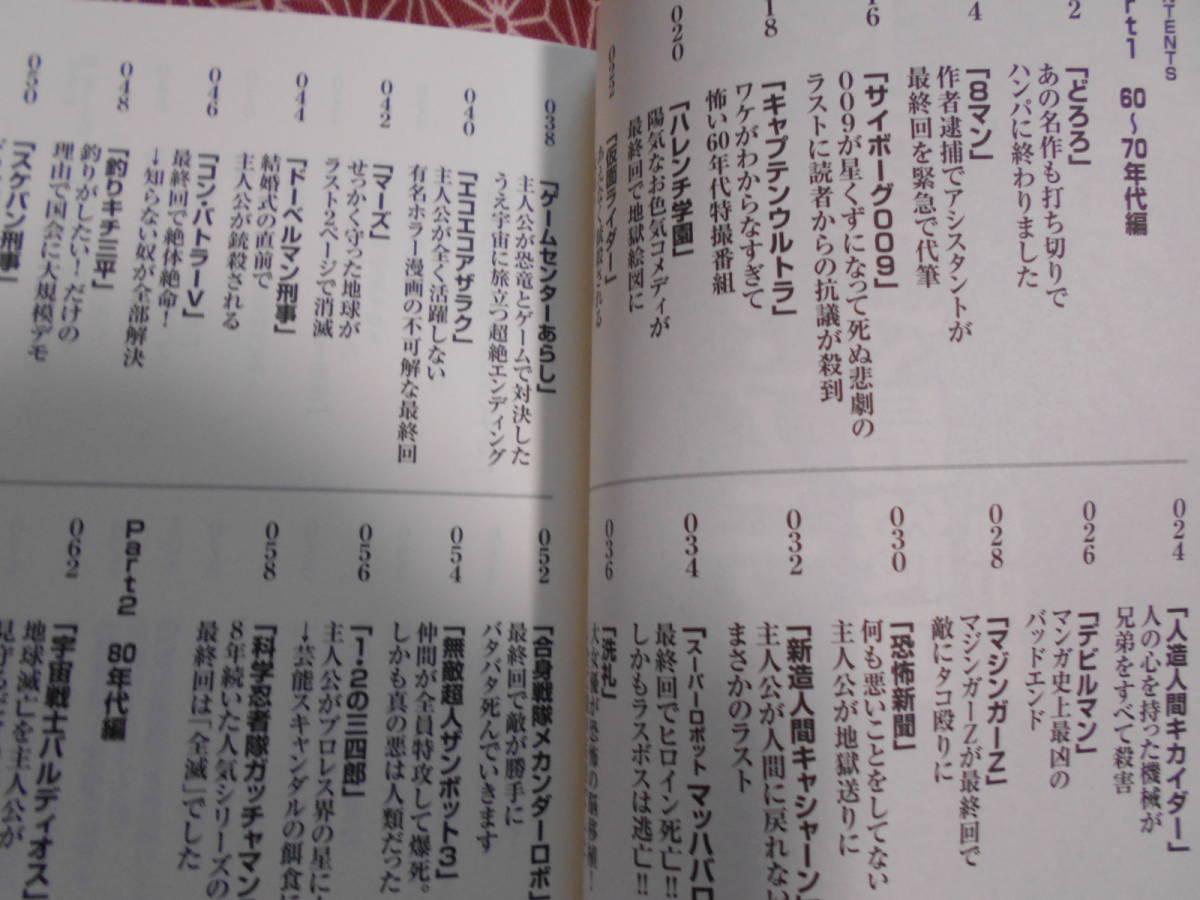 TENTS
rt1 60～70年代編
2
「どろろ」
あの名作も打ち切りで
ハンパに終わりました
4
「8マン」
作者逮捕でアシスタントが
最終回を緊急で代筆
16
「サイボーグ009」
009が星くずになって死ぬ悲劇の
ラストに読者からの抗議が殺到
18
「キャプテンウルトラ」
ワケがわからなすぎて
怖い60年代特撮番組
020
「ハレンチ学園」
陽気なお色気コメディが
最終回で地獄絵図に
022
「仮面ライダー」
024
「人造人間キカイダー」
人の心を持った機械が
兄弟をすべて殺害
026
「デビルマン」
マンガ史上最凶の
バッドエンド
028
「マジンガーZ」
マジンガーZが最終回で
敵にタコ殴りに
030
「恐怖新聞」
何も悪いことをしてない
主人公が地獄送りに
032
「新造人間キャシャーン
主人公が人間に戻れない
まさかのラスト
034
「スーパーロボット マッハバロ
最終回でヒロイン死亡!!
しかもラスボスは逃亡!!
036
「洗礼」
038
「ゲームセンターあらし」
主人公が恐竜とゲームで対決した
うえ宇宙に旅立つ超絶エンディング
040
「エコエコアザラク」
主人公が全く活躍しない
有名ホラー漫画の不可解な最終回
042
「マーズ」
せっかく守った地球が
ラスト2ページで消滅
044
「ドーベルマン刑事」
結婚式の直前で
主人公が銃殺される
046
「コン・バトラーV」
最終回で絶体絶命！
→知らない奴が全部解決
048
「釣りキチ三平」
釣りがしたい！だけの
理由で国会に大規模デモ
050
「スケバン刑事」
052
「合身戦隊メカンダーロボ」
最終回で敵が勝手に
バタバタ死んでいきます
054
「無敵超人ザンボット3」
仲間が全員特攻して爆死。
しかも真の悪は人類だった
056
「1・2の三四郎」
主人公がプロレス界の星に
→芸能スキャンダルの餌食に
058
「科学忍者隊ガッチャマン
8年続いた人気シリーズの
最終回は「全滅」でした
Part2 80年代編
062
「宇宙戦士バルディオス」
地球滅亡を主人公が